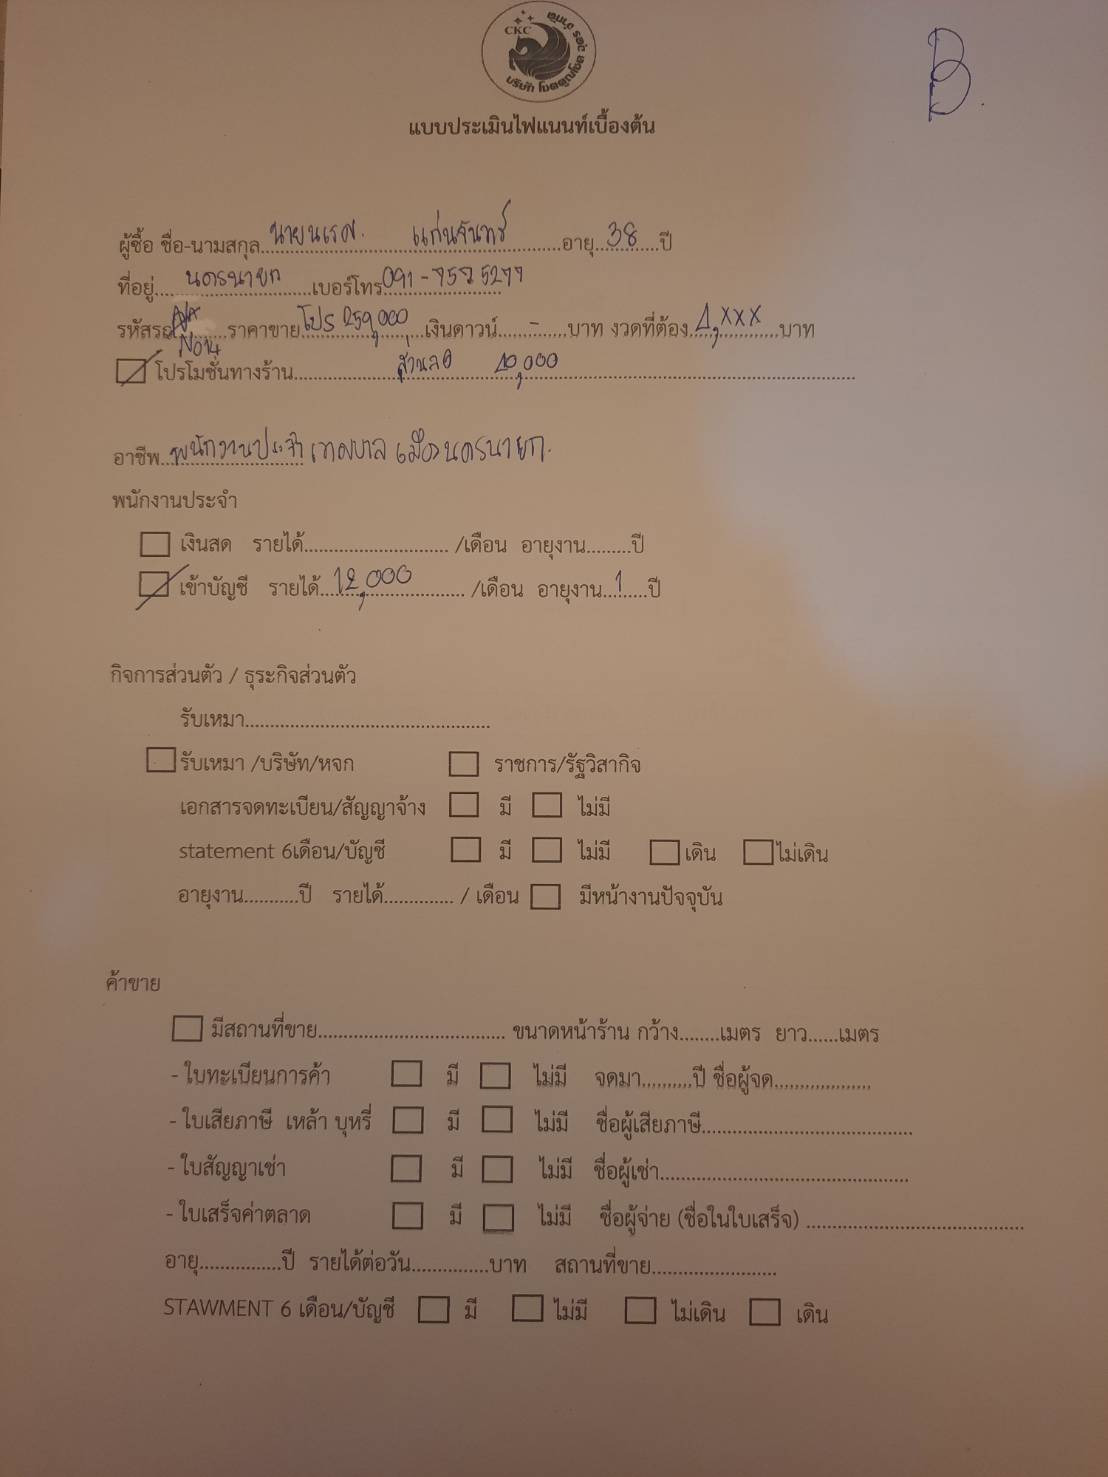 CKC
บริษัท โชคคูณโชค
B
แบบประเมินไฟแนนท์เบื้องต้น
ผู้ซื้อ ชื่อ-นามสกุล นายนเรศ แก่นจันทร์ อายุ 38 ปี
ที่อยู่ นครนายก เบอร์โทร 091-7575277
รหัสรถ N014 ราคาขาย โปร 259,000 เงินดาวน์ - บาท งวดที่ต้อง 4,xxx บาท
โปรโมชั่นทางร้าน ส่วนลด 20,000
อาชีพ พนักงานประจำ เทศบาล เมืองนครนายก
พนักงานประจำ
เงินสด รายได้ /เดือน อายุงาน ปี
เข้าบัญชี รายได้ 12,000 /เดือน อายุงาน 1 ปี
กิจการส่วนตัว / ธุระกิจส่วนตัว
รับเหมา
รับเหมา /บริษัท/หจก ราชการ/รัฐวิสากิจ
เอกสารจดทะเบียน/สัญญาจ้าง มี ไม่มี
statement 6เดือน/บัญชี มี ไม่มี เดิน ไม่เดิน
อายุงาน ปี รายได้ / เดือน มีหน้างานปัจจุบัน
ค้าขาย
มีสถานที่ขาย ขนาดหน้าร้าน กว้าง เมตร ยาว เมตร
- ใบทะเบียนการค้า มี ไม่มี จดมา ปี ชื่อผู้จด
- ใบเสียภาษี เหล้า บุหรี่ มี ไม่มี ชื่อผู้เสียภาษี
- ใบสัญญาเช่า มี ไม่มี ชื่อผู้เช่า
- ใบเสร็จค่าตลาด มี ไม่มี ชื่อผู้จ่าย (ชื่อในใบเสร็จ)
อายุ ปี รายได้ต่อวัน บาท สถานที่ขาย
STAWMENT 6 เดือน/บัญชี มี ไม่มี ไม่เดิน เดิน